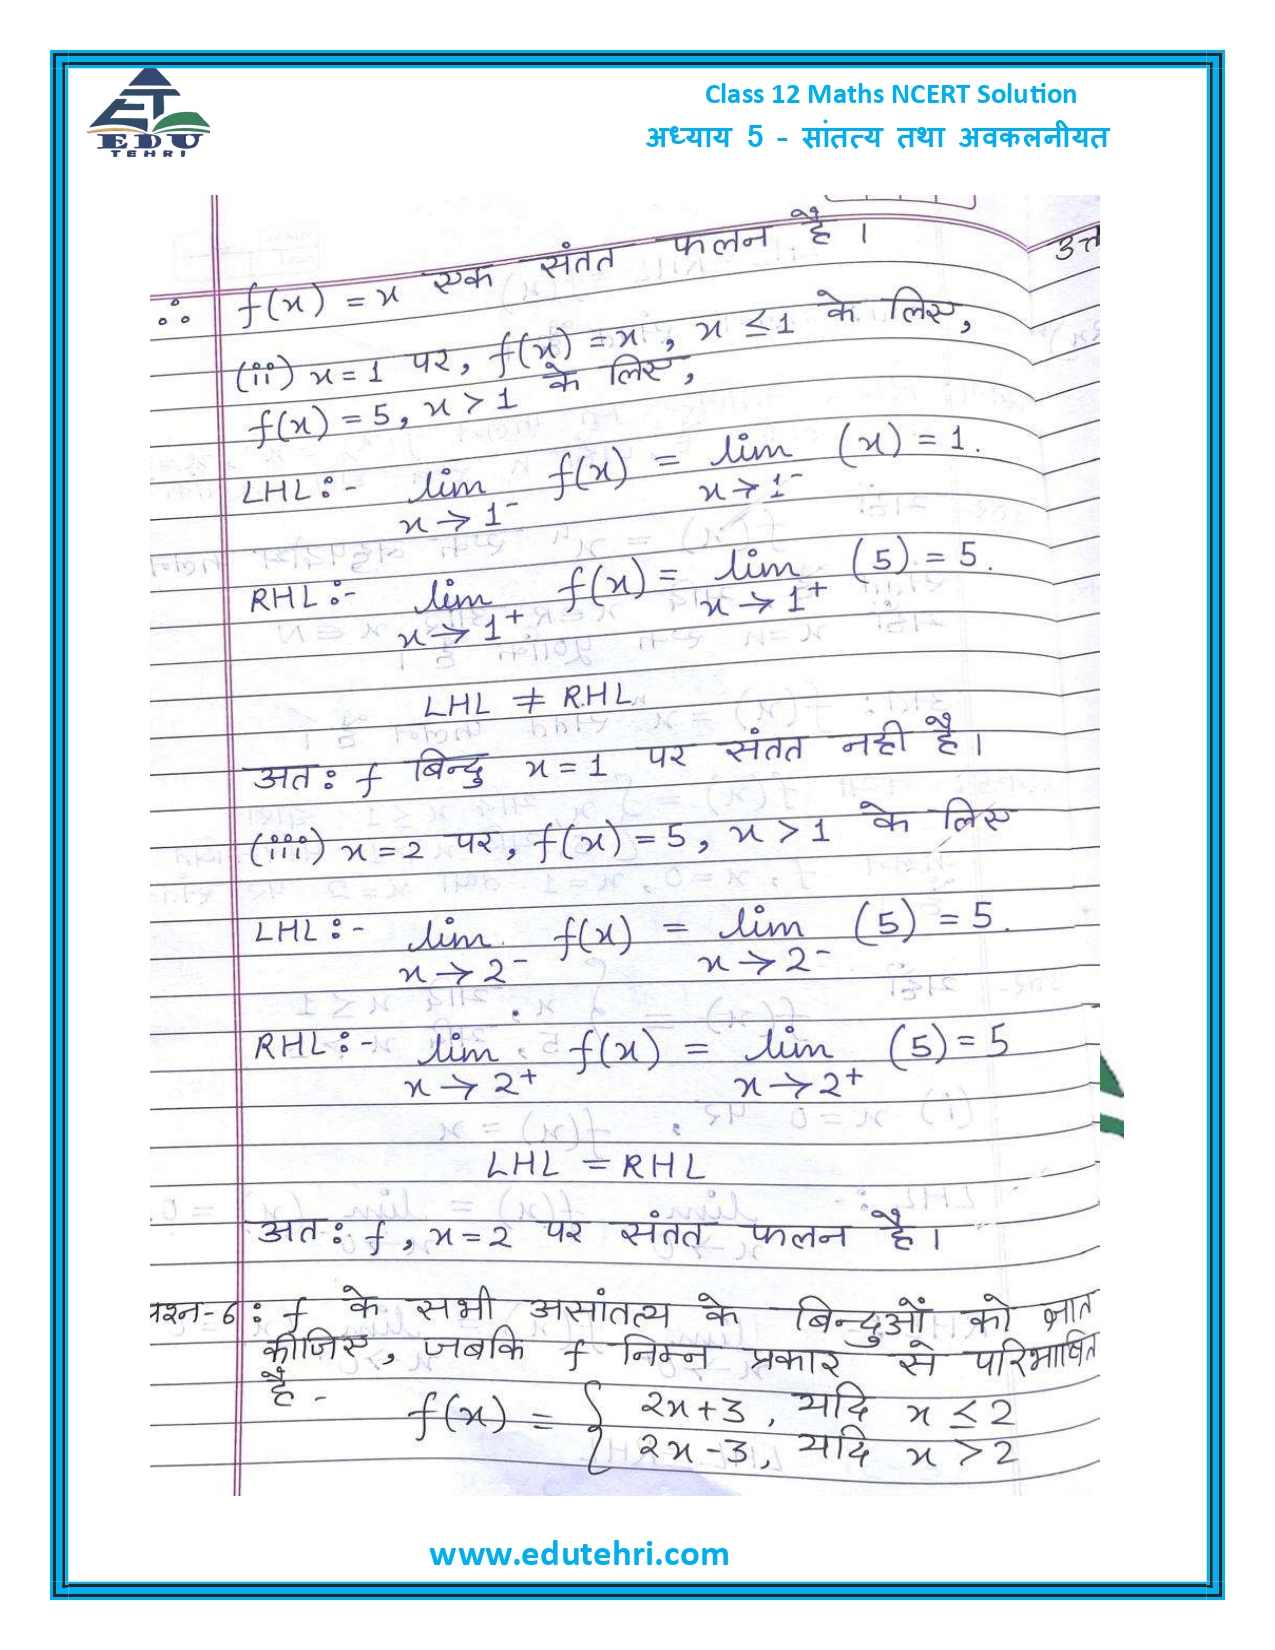 EDU
TEHRI
Class 12 Maths NCERT Solution
अध्याय 5 - सांतत्य तथा अवकलनीयत
उत्त
∴ f(x) = x एक संतत फलन है।
(ii) x=1 पर, f(x) = x, x ≤ 1 के लिए,
f(x) = 5, x > 1 के लिए,
LHL:- lim f(x) = lim (x) = 1.
x→1⁻ x→1⁻
RHL:- lim f(x) = lim (5) = 5.
x→1⁺ x→1⁺
LHL ≠ RHL
अत: f बिन्दु x=1 पर संतत नही है।
(iii) x=2 पर, f(x) = 5, x > 1 के लिए
LHL:- lim f(x) = lim (5) = 5.
x→2⁻ x→2⁻
RHL:- lim f(x) = lim (5) = 5
x→2⁺ x→2⁺
LHL = RHL
अत: f, x=2 पर संतत फलन है।
प्रश्न-6: f के सभी असांतत्य के बिन्दुओं को ज्ञात
कीजिए, जबकि f निम्न प्रकार से परिभाषित
है - f(x) = { 2x+3, यदि x ≤ 2
2x-3, यदि x > 2
www.edutehri.com